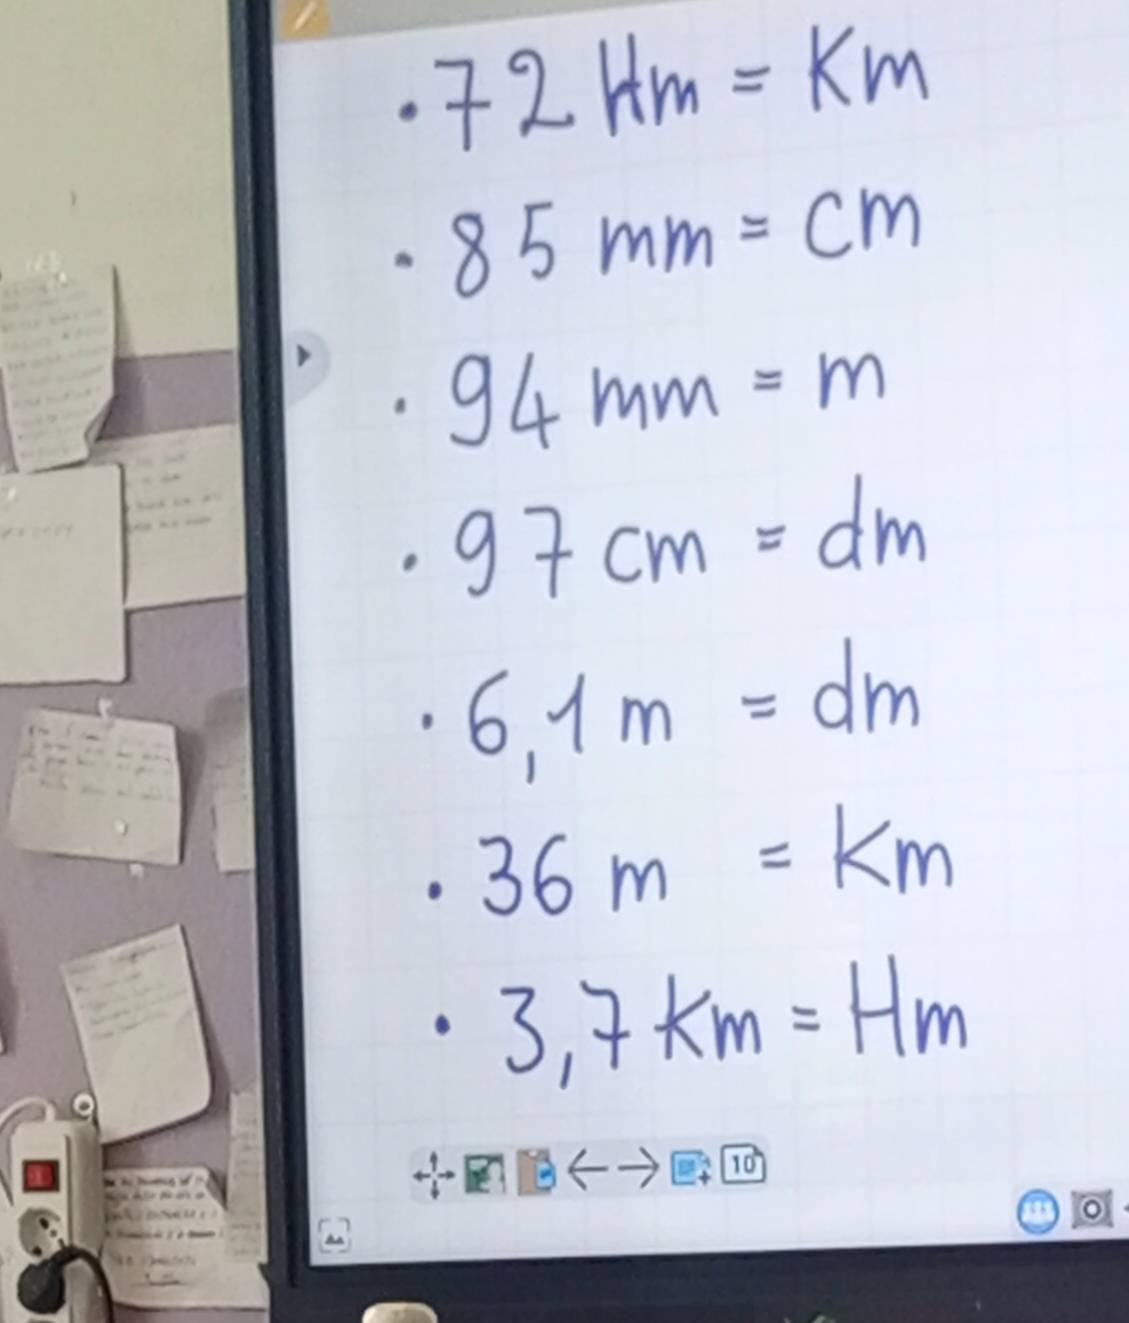 · 72 Hm = Km
· 85 mm = cm
· 94 mm = m
· 97 cm = dm
· 6,1 m = dm
· 36 m = Km
· 3,7 Km = Hm
10